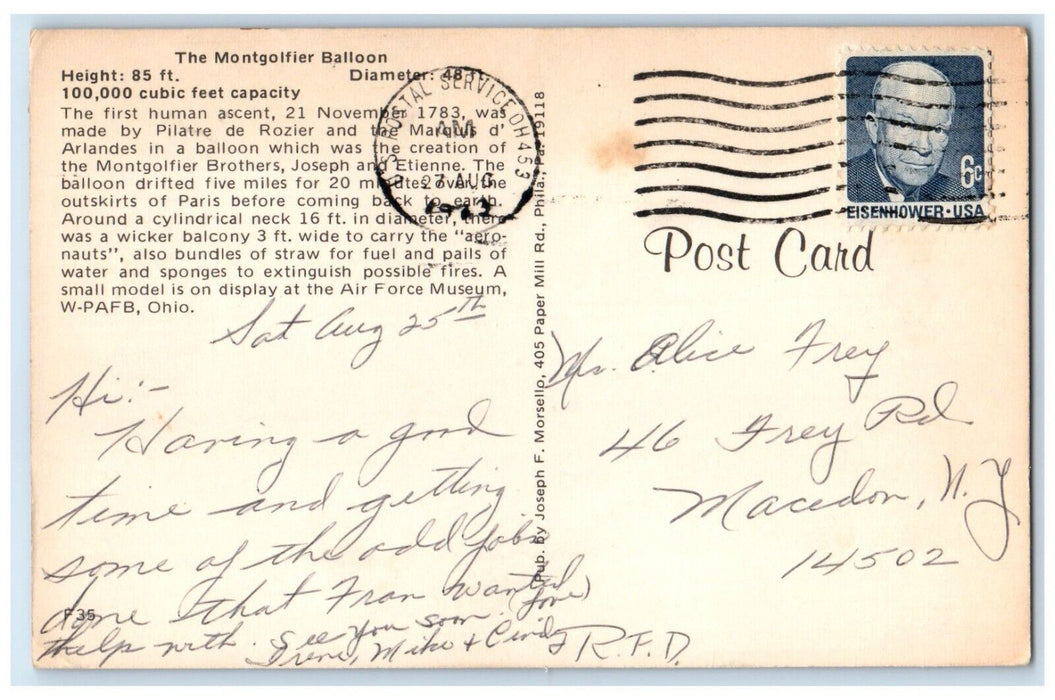 The Montgolfier Balloon
Height: 85 ft. Diameter: 48 ft.
100,000 cubic feet capacity
The first human ascent, 21 November 1783, was
made by Pilatre de Rozier and the Marquis d'
Arlandes in a balloon which was the creation of
the Montgolfier Brothers, Joseph and Etienne. The
balloon drifted five miles for 20 minutes over the
outskirts of Paris before coming back to earth.
Around a cylindrical neck 16 ft. in diameter, there
was a wicker balcony 3 ft. wide to carry the "aero-
nauts", also bundles of straw for fuel and pails of
water and sponges to extinguish possible fires. A
small model is on display at the Air Force Museum,
W-PAFB, Ohio.
Sat Aug 25th
Hi:-
Having a good
time and getting
some of the odd jobs
done that Fran wanted
help with. See you soon. (Love)
Irene, Mike + Cindy
F35
Pub. by Joseph F. Morsello, 405 Paper Mill Rd., Phila., Pa. 19118
US POSTAL SERVICE OH 453
AM
27 AUG
1973
6c
EISENHOWER·USA
Post Card
Mrs. Alice Frey
46 Frey Rd
Macedon, N.Y
14502
R.F.D.